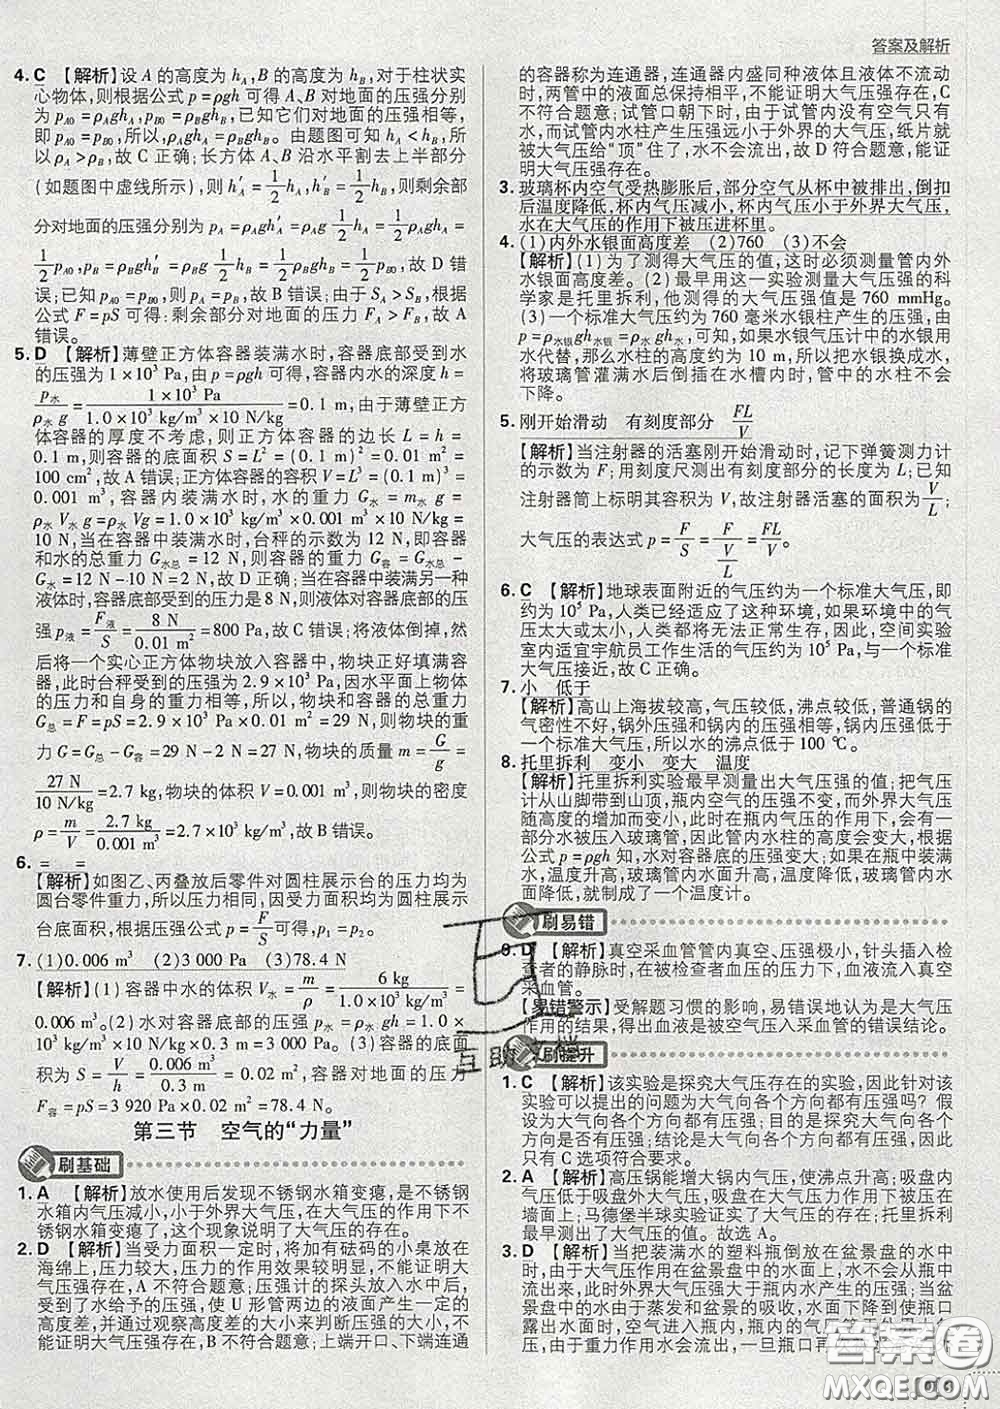 答案及解析
4. C 【解析】设 A 的高度为 hA,B 的高度为 hB,对于柱状实
心物体,则根据公式 p=ρgh 可得 A、B 对地面的压强分别
为 pA0=ρAghA,pB0=ρBghB,已知它们对地面的压强相等,
即 pA0=pB0,所以,ρAghA=ρBghB。由题图可知 hA<hB,所
以 ρA>ρB,故 C 正确;长方体 A、B 沿水平割去上半部分
(如题图中虚线所示),则 h′A=1/2 hA,h′B=1/2 hB,则剩余部
分对地面的压强分别为 pA=ρAgh′A=ρAg 1/2 hA=1/2 ρAghA=
1/2 pA0,pB=ρBgh′B=ρBg 1/2 hB=1/2 ρBghB=1/2 pB0,故 D 错
误;已知 pA0=pB0,则 pA=pB,故 B 错误;由于 SA>SB,根据
公式 F=pS 可得:剩余部分对地面的压力 FA>FB,故 A
错误。
5. D 【解析】薄壁正方体容器装满水时,容器底部受到水
的压强为 1×10³ Pa,由 p=ρgh 可得,容器内水的深度 h=
p水/ρ水g=1×10³ Pa/(1.0×10³ kg/m³×10 N/kg)=0.1 m,由于薄壁正方
体容器的厚度不考虑,则正方体容器的边长 L=h=
0.1 m,容器的底面积 S=L²=(0.1 m)²=0.01 m²=
100 cm²,故 A 错误;正方体容器的容积 V=L³=(0.1 m)³=
0.001 m³,容器内装满水时,水的重力 G水=m水g=
ρ水V水g=ρ水Vg=1.0×10³ kg/m³×0.001 m³×10 N/kg=
10 N,当在容器中装满水时,台秤的示数为 12 N,即容器
和水的总重力 G水总=12 N,则容器的重力 G容=G水总-
G水=12 N-10 N=2 N,故 C 错误;当在容器中装满另一种
液体时,容器底部受到的压力是 8 N,则容器底部受到的压
强 p液=F液/S=8 N/0.01 m²=800 Pa,故 C 错误;将液体倒掉,然
后将一个实心正方体物块放入容器中,物块正好填满容
器,此时台秤受到的压强为 2.9×10³ Pa,因水平面上物体
的压力和自身的重力相等,所以,物块和容器的总重力
G总=F=pS=2.9×10³ Pa×0.01 m²=29 N,则物块的重
力 G=G总-G容=29 N-2 N=27 N,物块的质量 m=G/g=
27 N/10 N/kg=2.7 kg,物块的体积 V=0.001 m³,则物块的密度
ρ=m/V=2.7 kg/0.001 m³=2.7×10³ kg/m³,故 B 错误。
6. = =
【解析】如图乙、丙叠放后零件对圆柱展示台的压力均为
圆台零件重力,所以压力相同,因受力面积均为圆柱展示
台面积,根据压强公式 p=F/S 可得,p1=p2。
7. (1)0.006 m³ (2)3 000 Pa (3)78.4 N
【解析】(1)容器中水的体积 V水=m/ρ=6 kg/1.0×10³ kg/m³=
0.006 m³。(2)水对容器底部的压强 p水=ρ水gh=1.0×
10³ kg/m³×10 N/kg×0.3 m=3 000 Pa。(3)容器的底面
积为 S=V/h=0.006 m³/0.3 m=0.02 m²,容器对桌面的压力
F容=pS=3 920 Pa×0.02 m²=78.4 N。
第三节 空气的“力量”
刷基础
1. A 【解析】放水使用后发现不锈钢水箱变瘪,是不锈钢
水箱内气压减小,小于外界大气压,在大气压的作用下不
锈钢水箱变瘪了,这个现象说明了大气压的存在。
2. D 【解析】当受力面积一定时,将加有砝码的小桌放在
海绵上,压力较大,压力的作用效果较明显,不能证明大
气压强存在,A 不符合题意;压强计的探头放入水中后,
受到了水给予的压强,使 U 形管两边的液面产生一定的
高度差,并通过观察高度差的大小来判断压强的大小,不
能证明大气压强存在,B 不符合题意;上端开口、下端连通
的容器称为连通器,连通器内盛同种液体且液体不流动
时,两管中的液面总保持相平,不能证明大气压强存在,C
不符合题意;试管口朝下时,由于试管内没有空气只有
水,而试管内水柱产生压强远小于外界的大气压,纸片就
被大气压给“顶”住了,水不会流出,故 D 符合题意,能证
明大气压强存在。
3. 玻璃杯内空气受热膨胀后,部分空气从杯中被排出,倒扣
后温度降低,杯内气压减小,杯内气压小于外界大气压,
水在大气压的作用下被压进杯里。
4. (1)内外水银面高度差 (2)760 (3)不会
【解析】(1)为了测得大气压的值,这时必须测量管内外
水银面高度差。(2)最早用这一实验测量大气压强的科
学家是托里拆利,他测得的大气压强值是 760 mmHg。
(3)一个标准大气压约为 760 毫米水银柱产生的压强,由
p=ρ水银gh水银=ρ水gh水,可知,如果水银气压计中的水银用
水代替,那么水柱的高度约为 10 m,所以水银换成水,
将玻璃管灌满水后倒插在水槽内时,管中的水柱不会
下降。
5. 刚开始滑动 有刻度部分 FL/V
【解析】当注射器的活塞刚开始滑动时,记下弹簧测力计
的示数为 F;用刻度尺测出有刻度部分的长度为 L;已知
注射器筒上标明其容积为 V,故注射器活塞的面积为V/L;
大气压的表达式 p=F/S=F/(V/L)=FL/V。
6. C 【解析】地球表面附近的气压约为一个标准大气压,即
约为 10⁵ Pa,人类已经适应了这种环境,如果环境中的气
压太大或太小,人类都将无法正常生存,因此,空间实验
室内适宜宇航员工作生活的气压约为 10⁵ Pa,与一个标准
大气压接近,故 C 正确。
7. 小 低于
【解析】高山上海拔较高,气压较低,沸点较低,普通锅的
气密性不好,锅外压强和锅内的压强相等,锅内压强低于
一个标准大气压,所以水的沸点低于 100 ℃。
8. 托里拆利 变小 变大 温度
【解析】托里拆利实验最早测量出大气压强的值;把气压
计从山脚带到山顶,瓶内空气的压强不变,而外界大气压
随高度的增加而变小,此时在瓶内气压的作用下,会有一
部分水被压入玻璃管,因此管内水柱的高度会变大,根据
公式 p=ρgh 知,水对容器底的压强变大;如果瓶中装满
水,温度升高,玻璃管内水面升高,温度降低,玻璃管内水
面降低,就制成了一个温度计。
刷易错
9. D 【解析】真空采血管管内真空、压强极小,针头插入检
查者的静脉时,在被检查者血压的压力下,血液流入真空
采血管。
【易错警示】受解题习惯的影响,易错误地认为是大气压
作用的结果,得出血液是被空气压入采血管的错误结论。
刷提升
1. C 【解析】该实验是探究大气压存在的实验,因此针对该
实验可以提出的问题为大气向各个方向都有压强吗?假
设为大气向各个方向都有压强;实验是探究大气向各个
方向是否有压强;结论是大气向各个方向都有压强,所以
只有 C 选项符合要求。
2. A 【解析】高压锅能增大锅内气压,使沸点升高;吸盘内
气压小于吸盘外大气压,吸盘在大气压力作用下被压在
墙面上;马德堡半球实验证实了大气压的存在;托里拆利
最早测出了大气压的值。故选 A。
3. D 【解析】当把装满水的塑料瓶倒放在盆景盘的水中
时,此时外界大气压强大于瓶内水产生的压强;当盆
景盘中的水由于蒸发和盆景的吸收,水面下降,瓶口
露出水面时,空气进入瓶内,瓶内的气压
,由于重力作用水会流出,一旦瓶口再
互助
答案卷
MXQE.COM